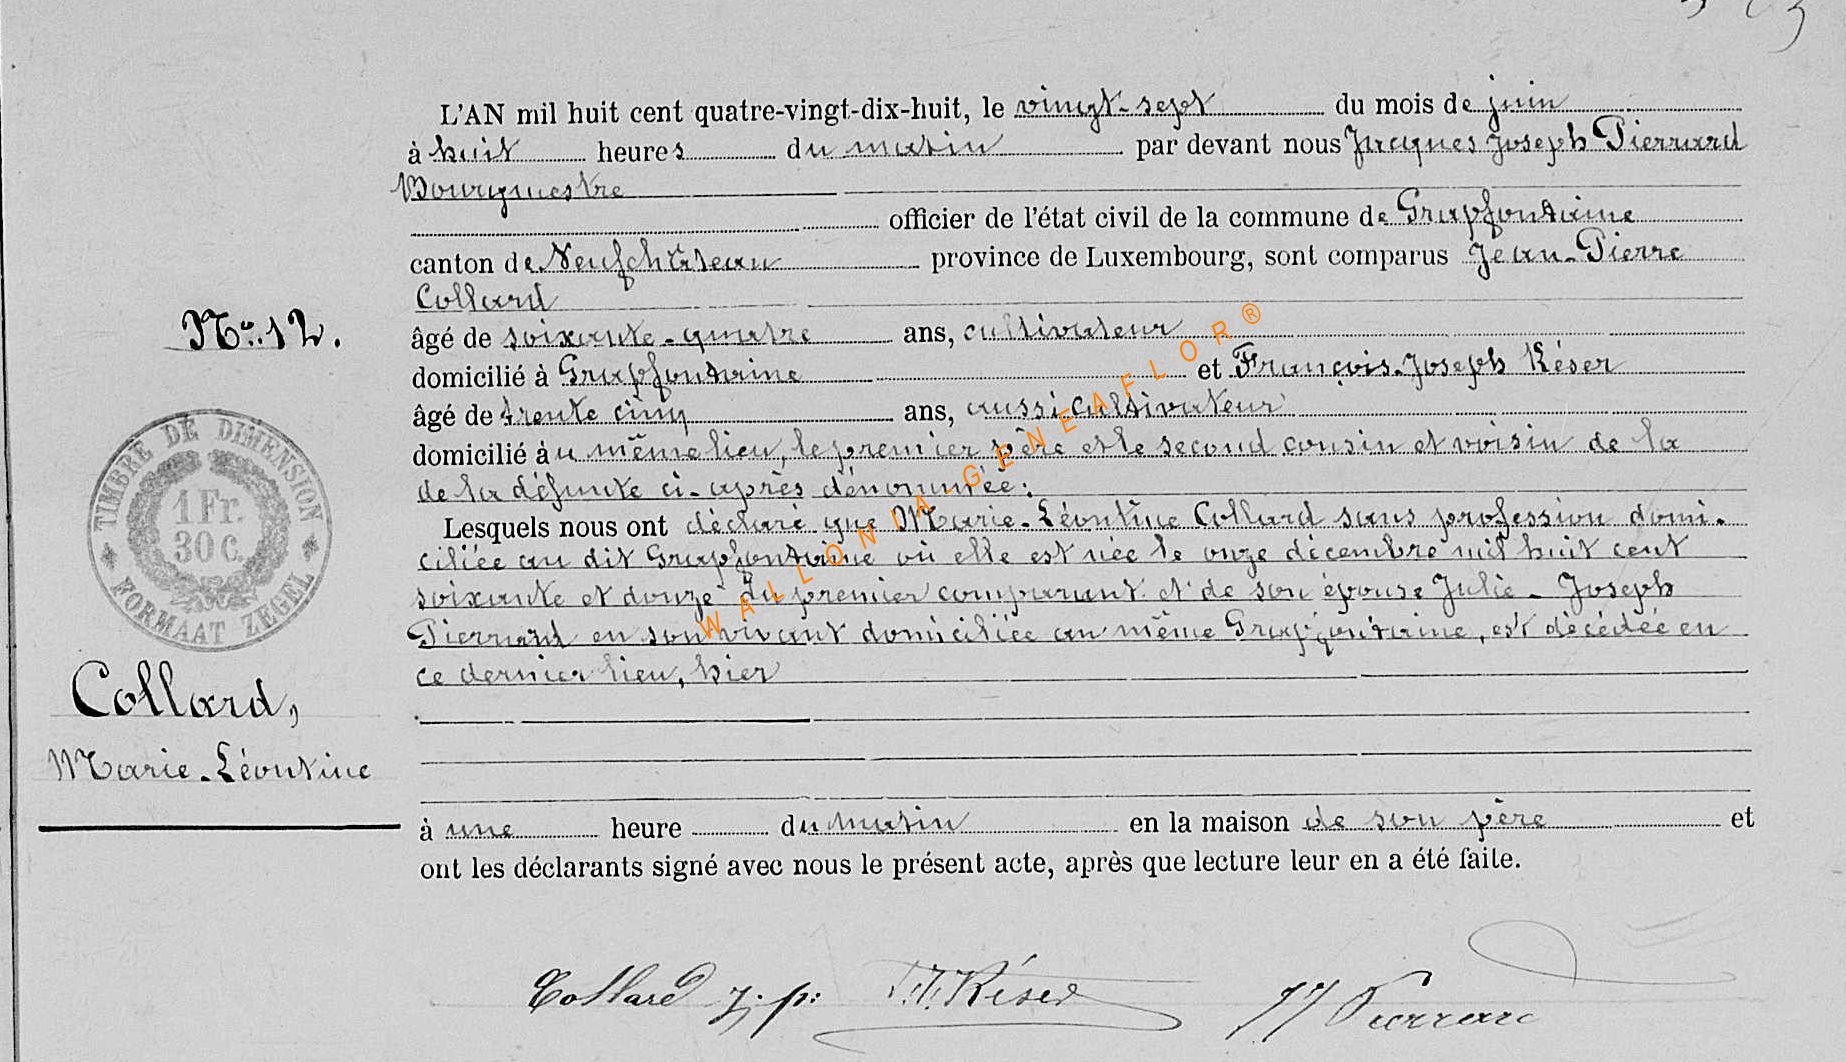 L'AN mil huit cent quatre-vingt-dix-huit, le vingt-sept du mois de juin
à huit heures du matin par devant nous Jacques Joseph Pierrard
Bourgmestre
officier de l'état civil de la commune de Grapfontaine
canton de Neufchâteau province de Luxembourg, sont comparus Jean-Pierre
Collard
N° 12.
âgé de soixante-quatre ans, cultivateur
domicilié à Grapfontaine et François-Joseph Réser
âgé de trente cinq ans, aussi cultivateur
domicilié au même lieu, le premier père et le second cousin et voisin de la
de la défunte ci-après dénommée:
Lesquels nous ont déclaré que Marie-Léontine Collard sans profession domi-
ciliée au dit Grapfontaine où elle est née le onze décembre mil huit cent
soixante et douze du premier comparant et de son épouse Julie-Joseph
Pierrard en son vivant domiciliée au même Grapfontaine, est décédée en
ce dernier lieu, hier
TIMBRE DE DIMENSION
1 Fr.
30 C.
FORMAAT ZEGEL
Collard,
Marie-Léontine
à une heure du matin en la maison de son père et
ont les déclarants signé avec nous le présent acte, après que lecture leur en a été faite.
Collard J. p: F. J. Réser JJ Pierrard
WALLONIA-GENEAFLOR®